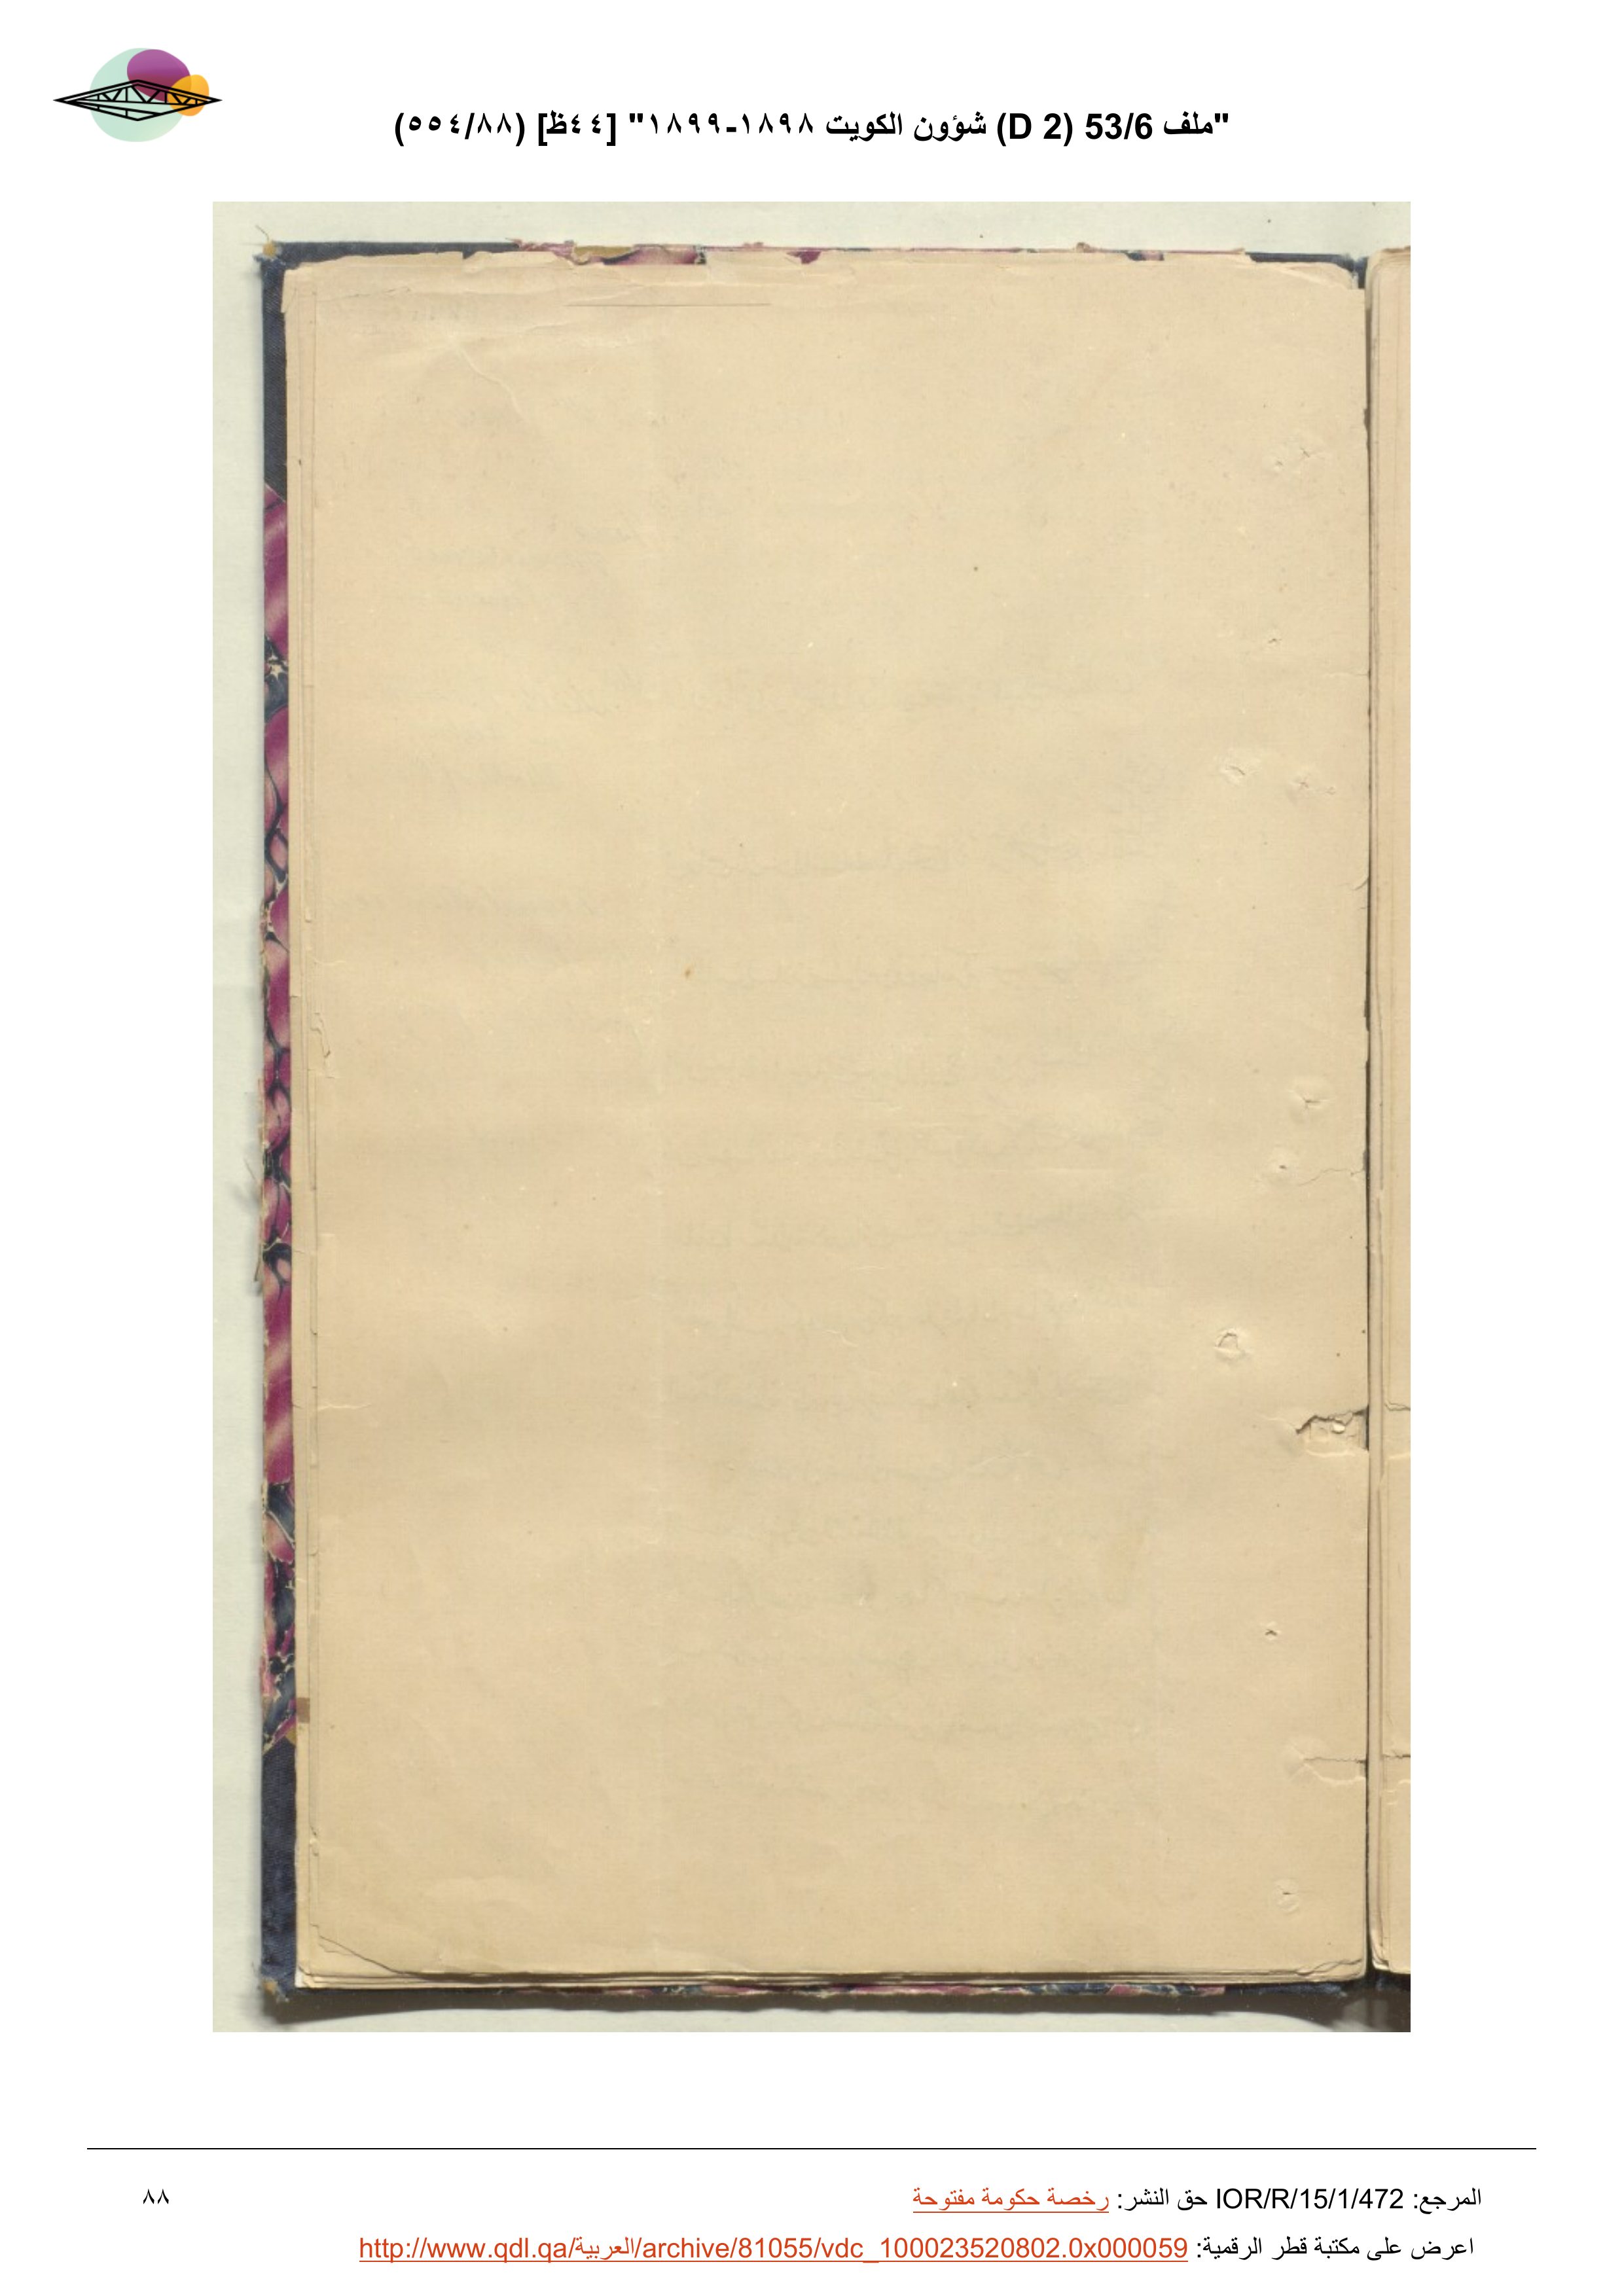 "ملف 53/6 (D 2) شؤون الكويت ١٨٩٨-١٨٩٩" [٤٤ظ] (٥٥٤/٨٨)
المرجع: IOR/R/15/1/472 حق النشر: رخصة حكومة مفتوحة
٨٨
اعرض على مكتبة قطر الرقمية: http://www.qdl.qa/العربية/archive/81055/vdc_100023520802.0x000059